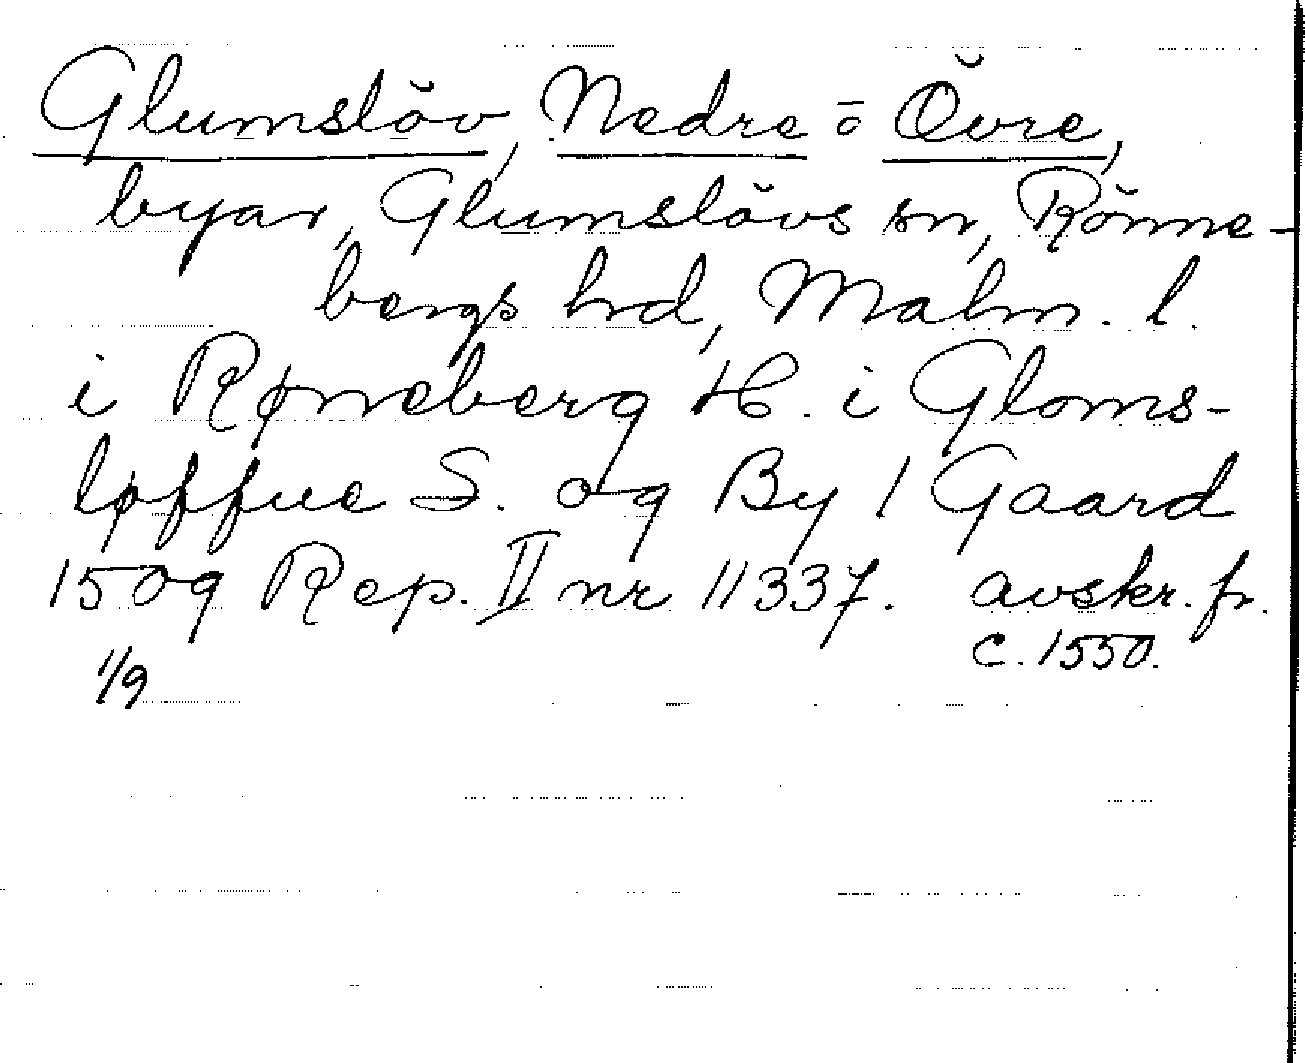 Glumslöv, Nedre o Övre,
byar, Glumslövs sn, Rönne-
bergs hd, Malm. l.
i Røneberg H. i Gloms-
løffue S. og By 1 Gaard
1509 Rep. II nr 11337. avskr. fr.
c. 1550.
1/9